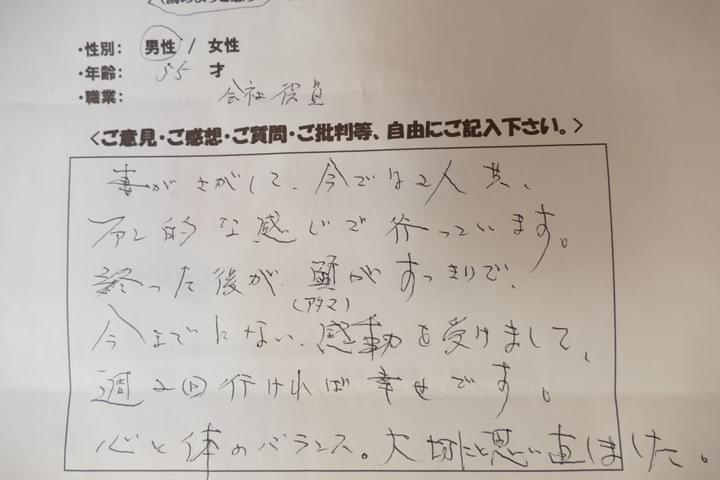 ・性別： 男性 / 女性
・年齢： 55 才
・職業： 会社役員
<ご意見・ご感想・ご質問・ご批判等、自由にご記入下さい。>
妻がさがして、今では2人共、
ファン的な感じで行っています。
終った後が、頭がすっきりで、
(アタマ)
今までにない、感動を受けまして、
週2回行ければ幸せです。
心と体のバランス。大切にと思い直しました。